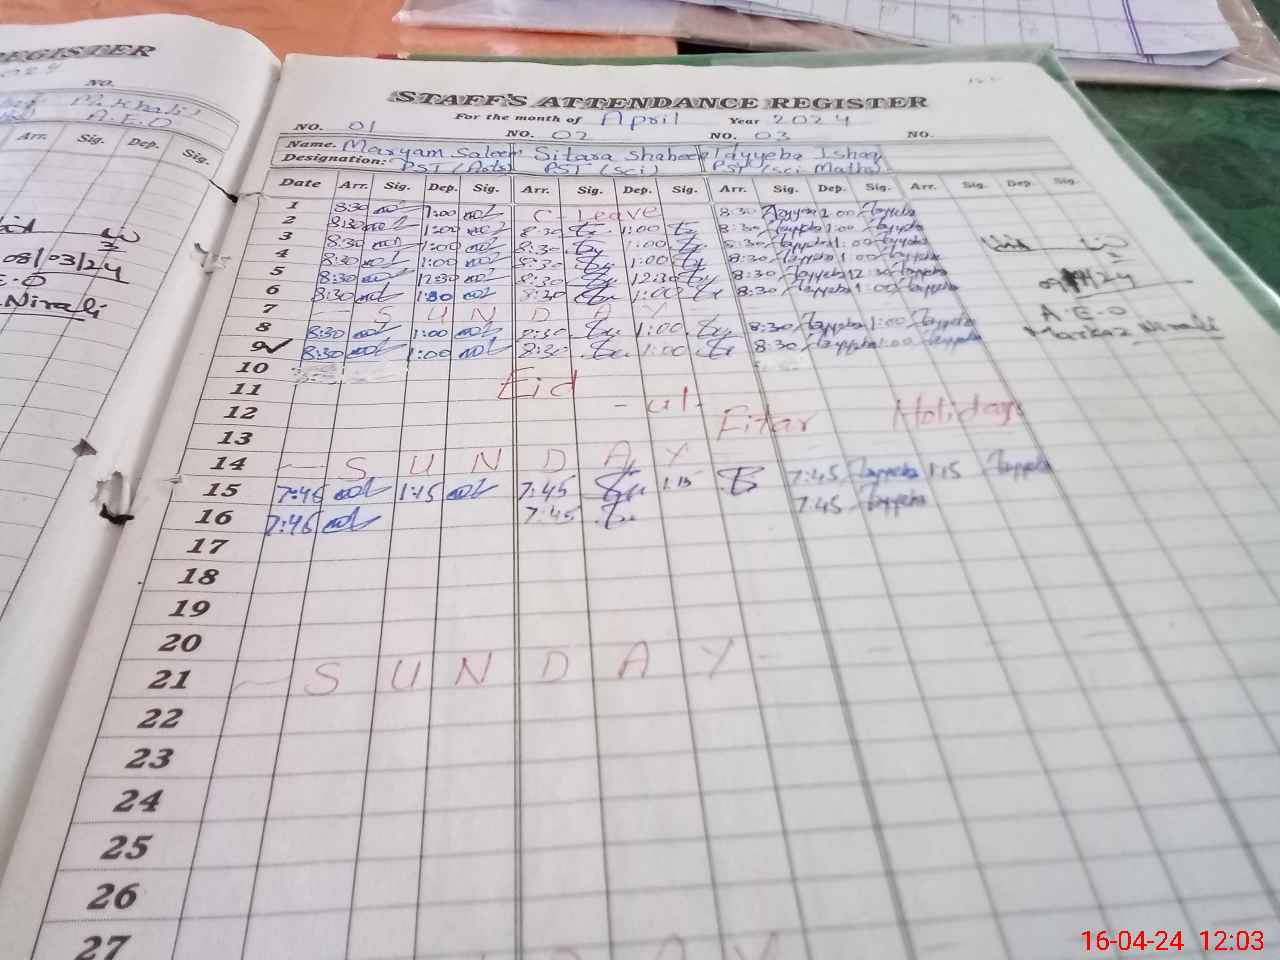 REGISTER
NO.
A.E.O
Arr. Sig. Dep. Sig.
08/03/24
E.O
Nirali
STAFF'S ATTENDANCE REGISTER
For the month of April Year 2024
NO. 01 NO. 02 NO. 03 NO.
Name. Maryam Saleem Sitara Shaheen Tayyeba Ishaq
Designation: PST (Arts) PST (sci) PST (sci Maths)
Date Arr. Sig. Dep. Sig. Arr. Sig. Dep. Sig. Arr. Sig. Dep. Sig. Arr. Sig. Dep. Sig.
1 8:30 1:00 C - Leave 8:30 Tayyeba 1:00 Tayyeba
2 8:30 1:00 8:30 1:00 8:30 Tayyeba 1:00 Tayyeba
3 8:30 1:00 8:30 1:00 8:30 Tayyeba 1:00 Tayyeba
4 8:30 1:00 8:30 1:00 8:30 Tayyeba 1:00 Tayyeba
5 8:30 12:30 8:30 12:30 8:30 Tayyeba 12:30 Tayyeba
6 8:30 1:00 8:30 1:00 8:30 Tayyeba 1:00 Tayyeba
7 - S U N D A Y -
8 8:30 1:00 8:30 1:00 8:30 Tayyeba 1:00 Tayyeba
9 8:30 1:00 8:30 1:00 8:30 Tayyeba 1:00 Tayyeba
A.E.O
Markaz Nirali
10
11 Eid
12 - ul - Fitar Holidays
13
14 - S U N D A Y -
15 7:45 1:15 7:45 1:15 7:45 Tayyeba 1:15 Tayyeba
16 7:45 7:45 7:45 Tayyeba
17
18
19
20
21 - S U N D A Y -
22
23
24
25
26
27
16-04-24 12:03